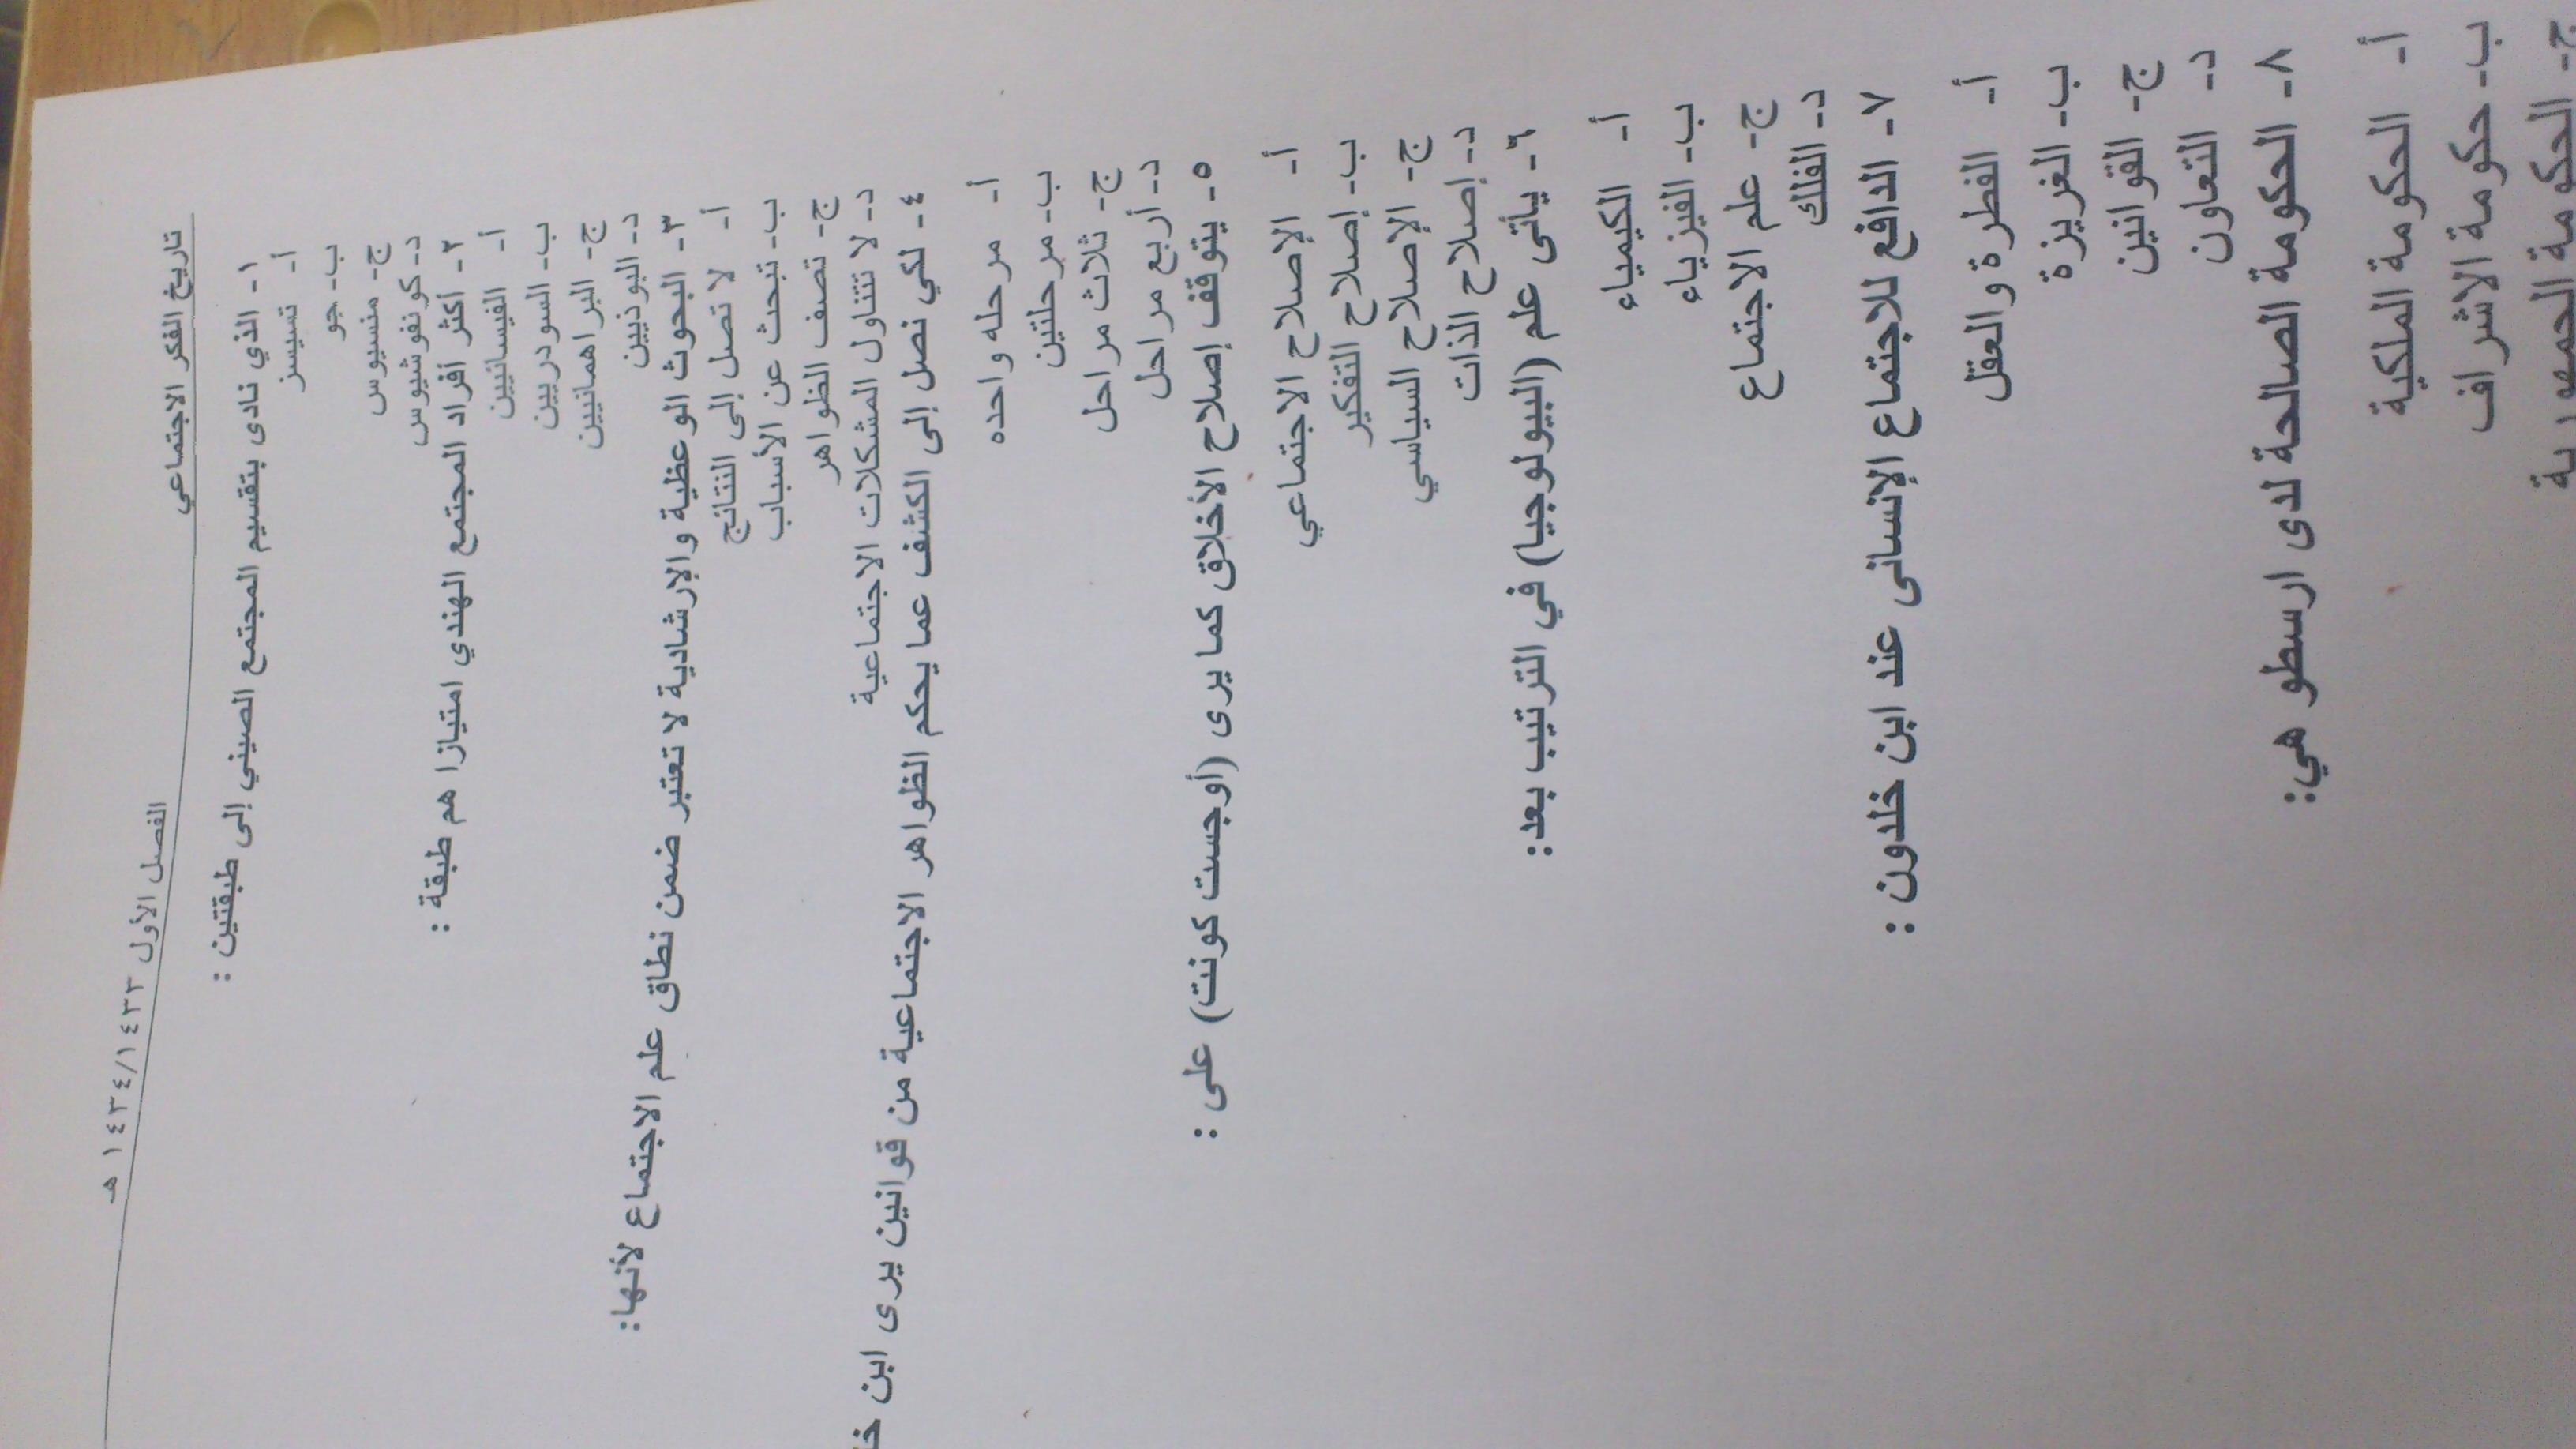 تاريخ الفكر الاجتماعي
الفصل الأول ١٤٣٤/١٤٣٣ هـ
١- الذي نادى بتقسيم المجتمع الصيني إلى طبقتين :
أ- تسيسز
ب- جو
ج- منسيوس
د- كونفوشيوس
٢- أكثر أفراد المجتمع الهندي امتيازا هم طبقة :
أ- الفيسانيين
ب- السودريين
ج- البراهمانيين
د- البوذيين
٣- البحوث الوعظية والإرشادية لا تعتبر ضمن نطاق علم الاجتماع لأنها:
أ- لا تصل إلى النتائج
ب- تبحث عن الأسباب
ج- تصف الظواهر
د- لا تتناول المشكلات الاجتماعية
٤- لكي نصل إلى الكشف عما يحكم الظواهر الاجتماعية من قوانين يرى ابن
أ- مرحله واحده
ب- مرحلتين
ج- ثلاث مراحل
د- أربع مراحل
٥- يتوقف إصلاح الأخلاق كما يرى (أوجست كونت) على :
أ- الإصلاح الاجتماعي
ب- إصلاح التفكير
ج- الإصلاح السياسي
د- إصلاح الذات
٦- يأتى علم (البيولوجيا) في الترتيب بعد:
أ- الكيمياء
ب- الفيزياء
ج- علم الاجتماع
د- الفلك
٧- الدافع للاجتماع الإنسانى عند ابن خلدون :
أ- الفطرة والعقل
ب- الغريزة
ج- القوانين
د- التعاون
٨- الحكومة الصالحة لدى ارسطو هي:
أ- الحكومة الملكية
ب- حكومة الاشراف
ج- الحكومة الجمهورية